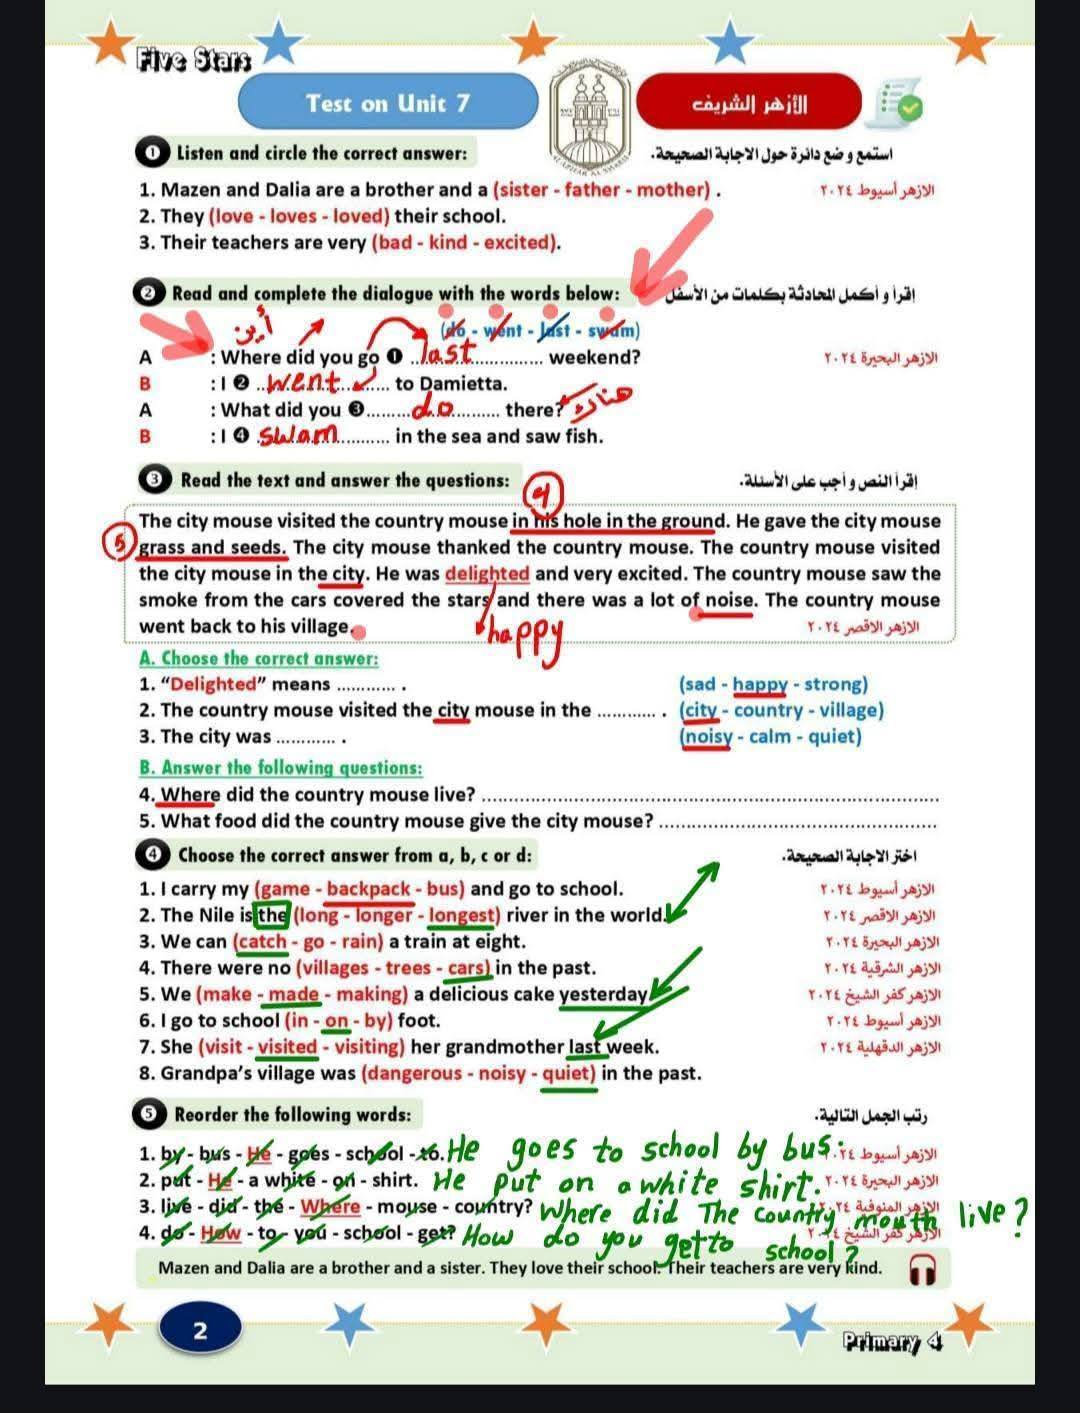 Five Stars
Test on Unit 7
الأزهر الشريف
1 Listen and circle the correct answer:
استمع و ضع دائرة حول الاجابة الصحيحة.
1. Mazen and Dalia are a brother and a (sister - father - mother) .
الازهر أسيوط ٢٠٢٤
2. They (love - loves - loved) their school.
3. Their teachers are very (bad - kind - excited).
2 Read and complete the dialogue with the words below:
إقرأ و أكمل المحادثة بكلمات من الأسفل
(do - went - last - swam)
أين
A : Where did you go ❶ ..last.................... weekend?
الازهر البحيرة ٢٠٢٤
B : I ❷ ..went............ to Damietta.
A : What did you ❸.........do........... there?
هناك
B : I ❹ .swam............ in the sea and saw fish.
3 Read the text and answer the questions:
إقرأ النص و أجب على الأسئلة.
4
The city mouse visited the country mouse in his hole in the ground. He gave the city mouse
5
grass and seeds. The city mouse thanked the country mouse. The country mouse visited
the city mouse in the city. He was delighted and very excited. The country mouse saw the
smoke from the cars covered the stars and there was a lot of noise. The country mouse
went back to his village.
happy
الازهر الاقصر ٢٠٢٤
A. Choose the correct answer:
1. “Delighted” means ............ .
(sad - happy - strong)
2. The country mouse visited the city mouse in the ............ .
(city - country - village)
3. The city was ............ .
(noisy - calm - quiet)
B. Answer the following questions:
4. Where did the country mouse live? ........................................................................
5. What food did the country mouse give the city mouse? ............................................
4 Choose the correct answer from a, b, c or d:
اختر الاجابة الصحيحة.
1. I carry my (game - backpack - bus) and go to school.
الازهر أسيوط ٢٠٢٤
2. The Nile is the (long - longer - longest) river in the world.
الازهر الاقصر ٢٠٢٤
3. We can (catch - go - rain) a train at eight.
الازهر البحيرة ٢٠٢٤
4. There were no (villages - trees - cars) in the past.
الازهر الشرقية ٢٠٢٤
5. We (make - made - making) a delicious cake yesterday
الازهر كفر الشيخ ٢٠٢٤
6. I go to school (in - on - by) foot.
الازهر أسيوط ٢٠٢٤
7. She (visit - visited - visiting) her grandmother last week.
الازهر الدقهلية ٢٠٢٤
8. Grandpa’s village was (dangerous - noisy - quiet) in the past.
5 Reorder the following words:
رتب الجمل التالية.
1. by - bus - He - goes - school - to. He goes to school by bus.
الازهر أسيوط ٢٠٢٤
2. put - He - a white - on - shirt. He put on a white shirt.
الازهر البحيرة ٢٠٢٤
3. live - did - the - Where - mouse - country? Where did The country mouth live?
الازهر المنوفية ٢٠٢٤
4. do - How - to - you - school - get? How do you get to school?
الازهر كفر الشيخ ٢٠٢٤
Mazen and Dalia are a brother and a sister. They love their school. Their teachers are very kind.
2
Primary 4